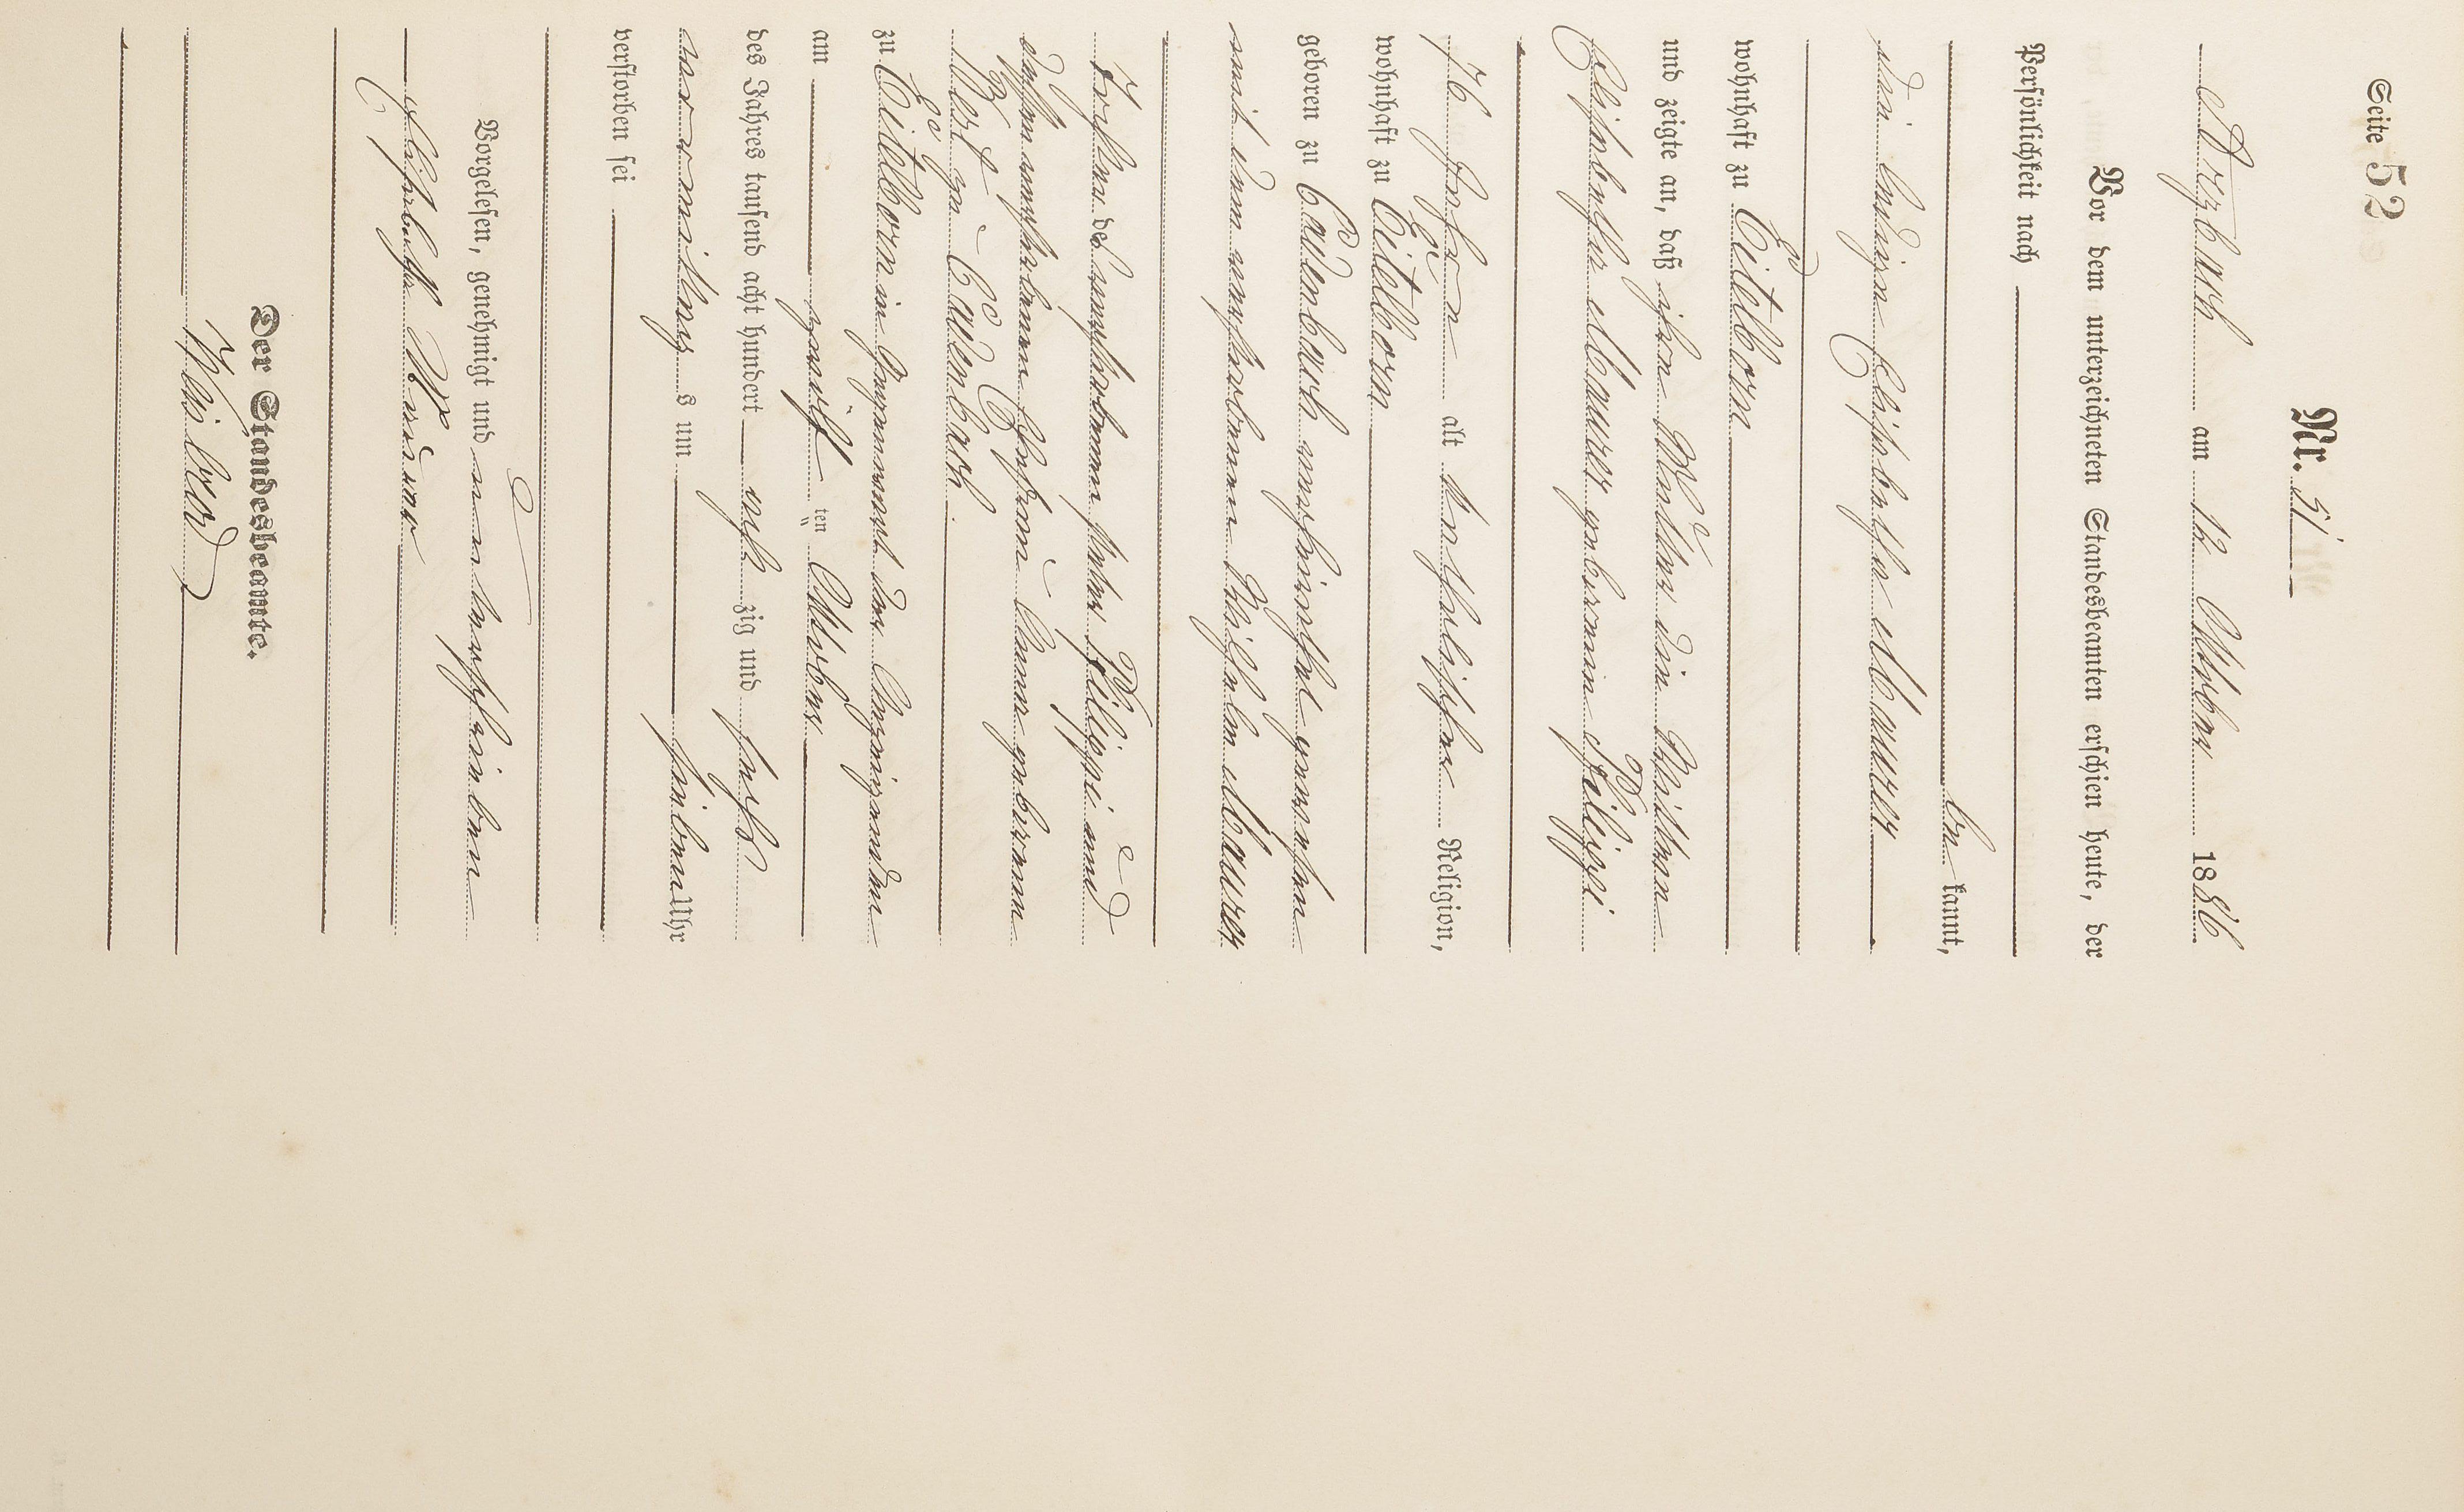 Seite 52
Nr. 51
Arzbach am 12 Oktober 1886
Vor dem unterzeichneten Standesbeamten erschien heute, der
Persönlichkeit nach
be kannt,
die ledige Elisabetha Maurer
wohnhaft zu Eitelborn
und zeigte an, daß ihre Mutter die Wittwe
Elisabetha Maurer geborene Philippi
76 Jahre alt katholischer Religion,
wohnhaft zu Eitelborn
geboren zu Cadenbach verheirathet gewesen
mit dem verstorbenen Wilhelm Maurer
Tochter des verstorbenen Peter Philippi und
dessen verstorbenen Ehefrau Anna geborenen
Best zu Cadenbach.
zu Eitelborn in Gegenwart der Anzeigenden
am zwölf ten Oktober
des Jahres tausend acht hundert acht zig und sechs
vormittag s um sieben Uhr
verstorben sei
Vorgelesen, genehmigt und unterschrieben
Elisabetha Maurer
Der Standesbeamte.